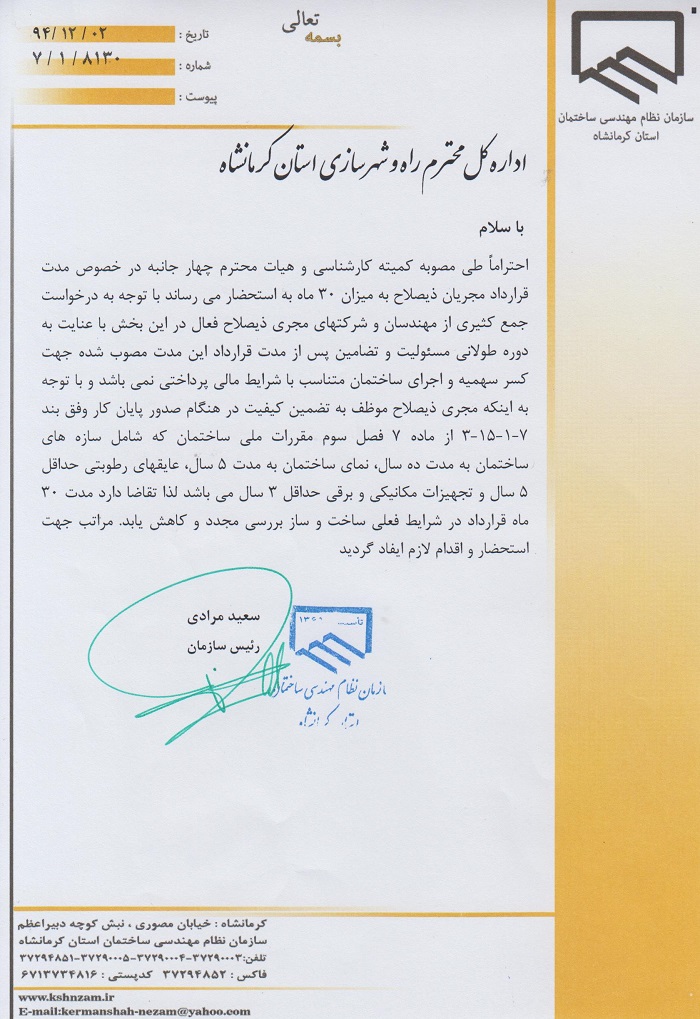 بسمه تعالی
تاریخ : ۹۴/۱۲/۰۲
شماره : ۷/۱/۸۱۳۰
پیوست :
سازمان نظام مهندسی ساختمان
استان کرمانشاه
اداره کل محترم راه و شهرسازی استان کرمانشاه
با سلام
احتراماً طی مصوبه کمیته کارشناسی و هیات محترم چهار جانبه در خصوص مدت
قرارداد مجریان ذیصلاح به میزان ۳۰ ماه به استحضار می رساند با توجه به درخواست
جمع کثیری از مهندسان و شرکتهای مجری ذیصلاح فعال در این بخش با عنایت به
دوره طولانی مسئولیت و تضامین پس از مدت قرارداد این مدت مصوب شده جهت
کسر سهمیه و اجرای ساختمان متناسب با شرایط مالی پرداختی نمی باشد و با توجه
به اینکه مجری ذیصلاح موظف به تضمین کیفیت در هنگام صدور پایان کار وفق بند
۷-۱-۱۵-۳ از ماده ۷ فصل سوم مقررات ملی ساختمان که شامل سازه های
ساختمان به مدت ده سال، نمای ساختمان به مدت ۵ سال، عایقهای رطوبتی حداقل
۵ سال و تجهیزات مکانیکی و برقی حداقل ۳ سال می باشد لذا تقاضا دارد مدت ۳۰
ماه قرارداد در شرایط فعلی ساخت و ساز بررسی مجدد و کاهش یابد. مراتب جهت
استحضار و اقدام لازم ایفاد گردید
سعید مرادی
رئیس سازمان
سازمان نظام مهندسی ساختمان
استان کرمانشاه
کرمانشاه : خیابان مصوری ، نبش کوچه دبیراعظم
سازمان نظام مهندسی ساختمان استان کرمانشاه
تلفن:۳۷۲۹۰۰۰۳-۳۷۲۹۰۰۰۴-۳۷۲۹۰۰۰۵-۳۷۲۹۴۸۵۱
فاکس : ۳۷۲۹۴۸۵۲ کدپستی : ۶۷۱۳۷۳۴۸۱۶
www.kshnzam.ir
E-mail:kermanshah-nezam@yahoo.com